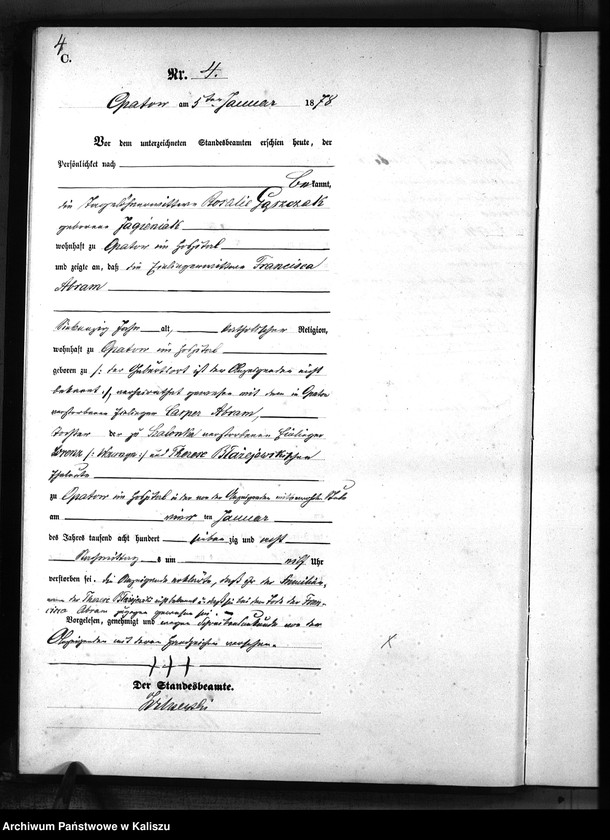 4
C.
Nr. 4.
Opatow am 5ten Januar 1878
Vor dem unterzeichneten Standesbeamten erschien heute, der
Persönlichkeit nach
bekannt,
die Tagelöhnerwittwe Rosalie Gąszczak
geborene Jagieniak
wohnhaft zu Opatow im Hospital
und zeigte an, daß die Einliegerwittwe Francisca
Abram
Siebenzig Jahr alt, katholischer Religion,
wohnhaft zu Opatow im Hospital
geboren zu /: der Geburtsort ist der Anzeigenden nicht
bekannt :/, verheirathet gewesen mit dem in Opatow
verstorbenen Einlieger Casper Abram,
Tochter der zu verstorbenen Einlieger
Lorenz und Therese Błażejewskischen
Eheleute
zu Opatow im Hospital in der von der Anzeigenden Stube
am vier ten Januar
des Jahres tausend acht hundert sieben zig und acht
Nachmittag s um Uhr
verstorben sei. die Anzeigende erklärte, daß ihr der
der Therese nicht bekannt u. daß sie bei dem Tode der Fran-
cisca Abram zugegen gewesen sei.
Vorgelesen, genehmigt und wegen Schreibensunkunde von der
Anzeigenden mit deren Handzeichen versehen.
+++
Der Standesbeamte.
Archiwum Państwowe w Kaliszu